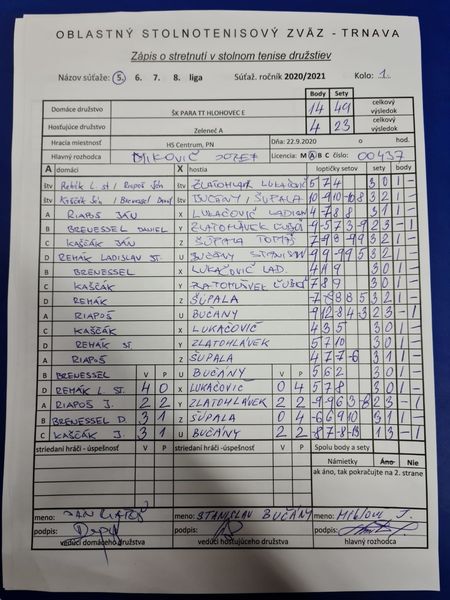 OBLASTNÝ STOLNOTENISOVÝ ZVÄZ - TRNAVA
Zápis o stretnutí v stolnom tenise družstiev
Názov súťaže: 5. 6. 7. 8. liga Súťaž. ročník 2020/2021 Kolo: 1.
Body Sety
Domáce družstvo ŠK PARA TT HLOHOVEC E 14 49 celkový výsledok
Hosťujúce družstvo Zeleneč A 4 23 celkový výsledok
Hracia miestnosť HS Centrum, PN Dňa: 22.9.2020 o hod.
Hlavný rozhodca MIKOVIČ JOZEF Licencia: M A B C číslo: 00437
A domáci X hostia loptičky setov sety body
štv Remák L. st / Riapoš Ján štv ZLATOHLÁV. LUKAČOVIČ 5 7 4 3 0 1 -
štv Kaščák Ján / Brenessel Daniel štv BUČÁNY / ŠUPALA 10 -9 10 -10 8 3 2 1 -
A RIAPOŠ JÁN X LUKAČOVIČ LADISLAV 4 -7 8 8 3 1 1 -
B BRENESSEL DANIEL Y ZLATOHLÁVEK ĽUBOŠ 2 3 - 1
C KAŠČÁK JÁN Z ŠUPALA TOMÁŠ 3 2 1 -
D REMÁK LADISLAV ST. U BUČÁNY STANISLAV 3 2 1 -
B BRENESSEL X LUKAČOVIČ LAD. 4 4 9 3 0 1 -
C KAŠČÁK Y ZLATOHLÁVEK ĽUBOŠ 7 8 9 3 0 1 -
D REMÁK Z ŠUPALA 3 2 1 -
A RIAPOŠ U BUČÁNY 2 3 - 1
C KAŠČÁK X LUKAČOVIČ 4 3 5 3 0 1 -
D REMÁK ST Y ZLATOHLÁVEK 5 7 10 3 0 1 -
A RIAPOŠ Z ŠUPALA 4 7 7 -6 3 1 1 -
B BRENESSEL V P U BUČÁNY V P 5 6 2 3 0 1 -
D REMÁK L. ST. 4 0 X LUKAČOVIČ 0 4 5 7 8 3 0 1 -
A RIAPOŠ J. 2 2 Y ZLATOHLÁVEK 2 2 2 3 - 1
B BRENESSEL D. 3 1 Z ŠUPALA 0 4 -6 6 9 10 3 1 1 -
C KAŠČÁK J. 3 1 U BUČÁNY 2 2 -8 7 -8 -13 1 3 - 1
striedaní hráči - úspešnosť V P striedaní hráči - úspešnosť V P Spolu body a sety
Námietky Áno Nie
ak áno, tak pokračujte na 2. strane
meno: JÁN RIAPOŠ meno: STANISLAV BUČÁNY meno: MIKOVIČ J.
podpis: podpis: podpis:
vedúci domáceho družstva vedúci hosťujúceho družstva hlavný rozhodca